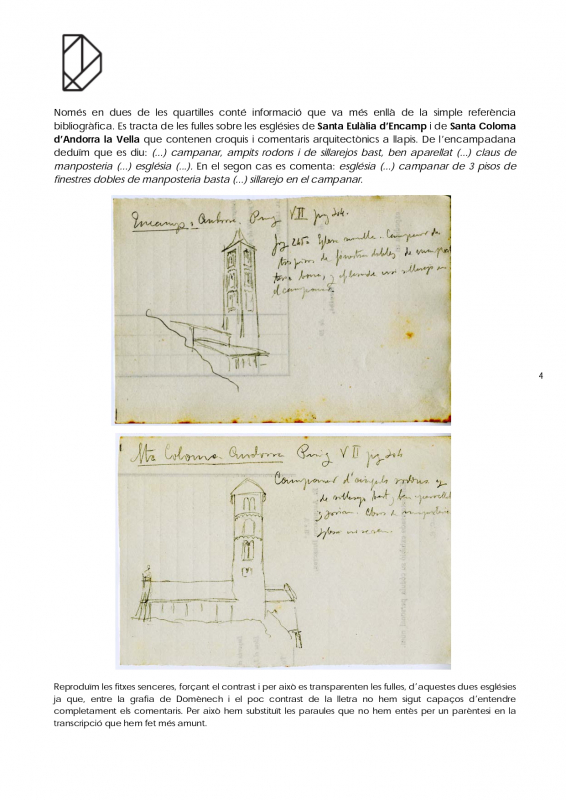 Només en dues de les quartilles conté informació que va més enllà de la simple referència
bibliogràfica. Es tracta de les fulles sobre les esglésies de Santa Eulàlia d'Encamp i de Santa Coloma
d'Andorra la Vella que contenen croquis i comentaris arquitectònics a llapis. De l'encampadana
deduïm que es diu: (...) campanar, ampits rodons i de sillarejos bast, ben aparellat (...) claus de
manposteria (...) església (...). En el segon cas es comenta: església (...) campanar de 3 pisos de
finestres dobles de manposteria basta (...) sillarejo en el campanar.
Encamp, Andorra. Puig VII pg 204.
campanar de
finestres dobles de
el campanar
4
Sta Coloma. Andorra Puig VII pg 204
Campanar d'
de sillarejo bast, ben
Reproduïm les fitxes senceres, forçant el contrast i per això es transparenten les fulles, d'aquestes dues esglésies
ja que, entre la grafia de Domènech i el poc contrast de la lletra no hem sigut capaços d'entendre
completament els comentaris. Per això hem substituït les paraules que no hem entès per un parèntesi en la
transcripció que hem fet més amunt.